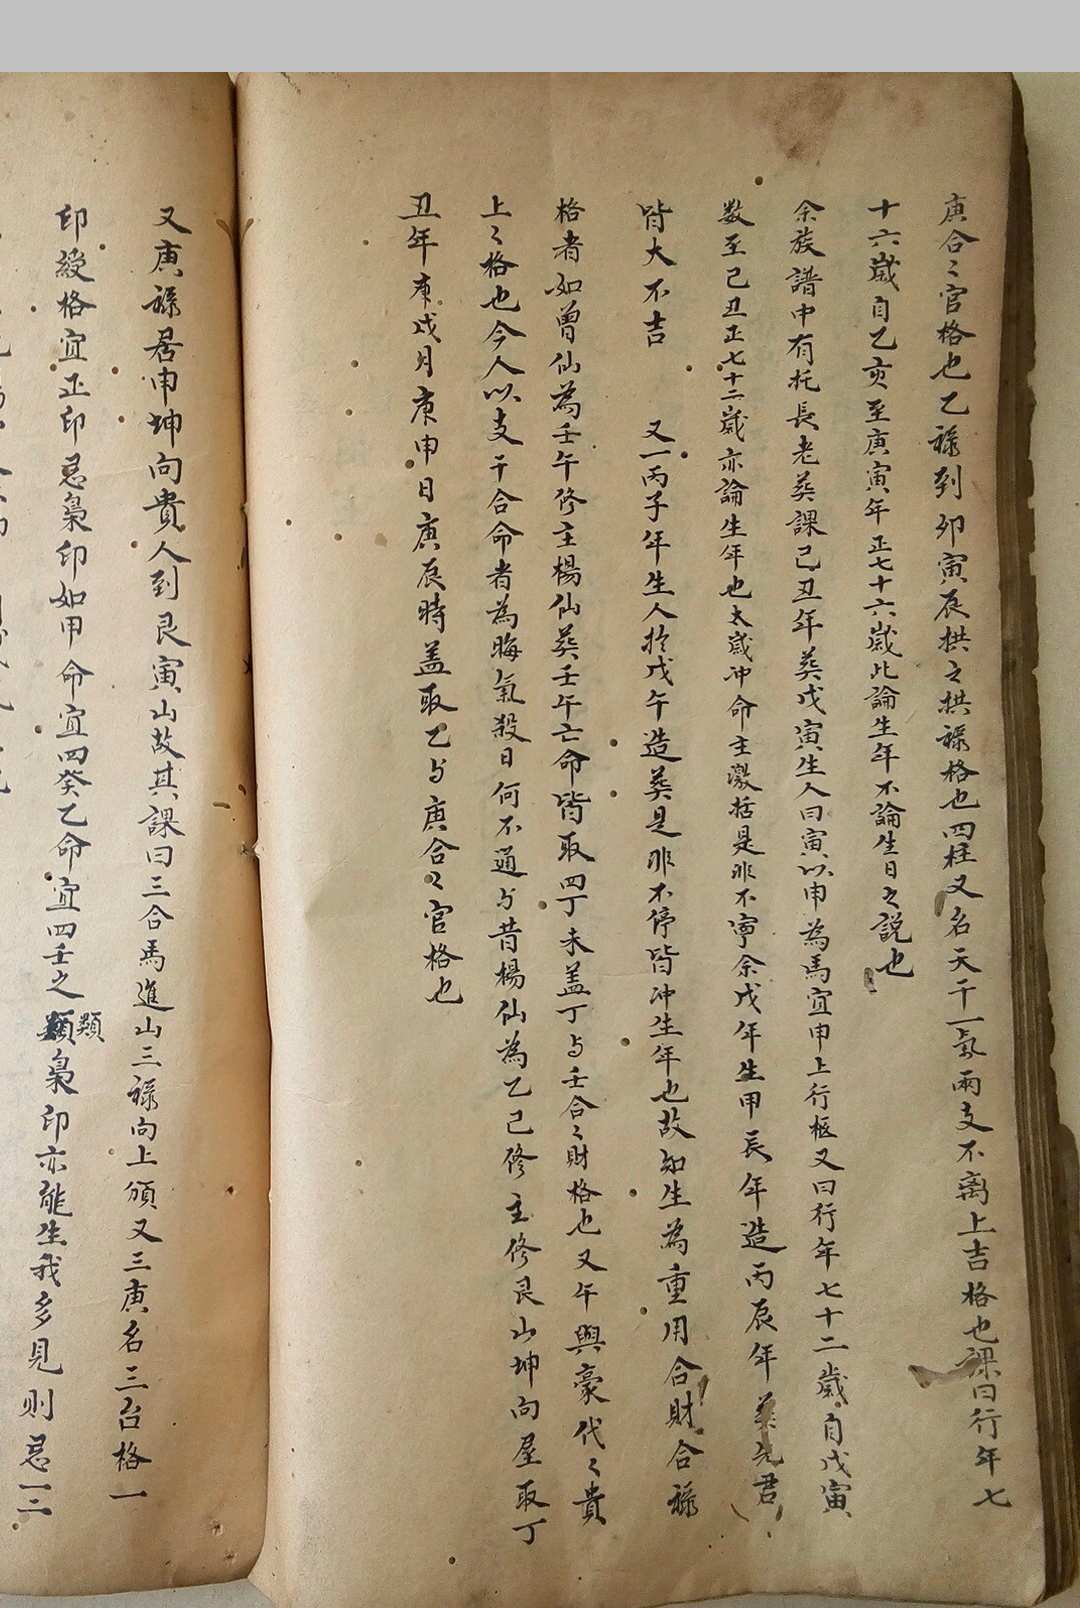 庚合〻官格也乙祿到卯寅辰拱之拱祿格也四柱又名天干一氣兩支不离上吉格也課曰行年七
十六歲自乙亥至庚寅年正七十六歲此論生年不論生日之説也
余族譜中有托長老葬課己丑年葬戊寅生人曰寅以申為馬宜申上行柩又曰行年七十二歲自戊寅
数至己丑正七十二歲亦論生年也太歲冲命主激括是非不寧余戊年生甲辰年造丙辰年葬先君
皆大不吉　又一丙子年生人扵戊午造葬是非不停皆冲生年也故知生為重用合財合祿
格者如曾仙為壬午修主楊仙葬壬午亡命皆取四丁未盖丁与壬合〻財格也又午與豪代〻貴
上〻格也今人以支干合命者為晦氣殺日何不通与昔楊仙為乙己修主修艮山坤向屋取丁
丑年庚戌月庚申日庚辰時盖取乙与庚合〻官格也
又庚祿居申坤向貴人到艮寅山故其課曰三合馬進山三祿向上頒又三庚名三台格一
印綬格宜正印忌梟印如甲命宜四癸乙命宜四壬之類梟印亦能生我多見則忌一二